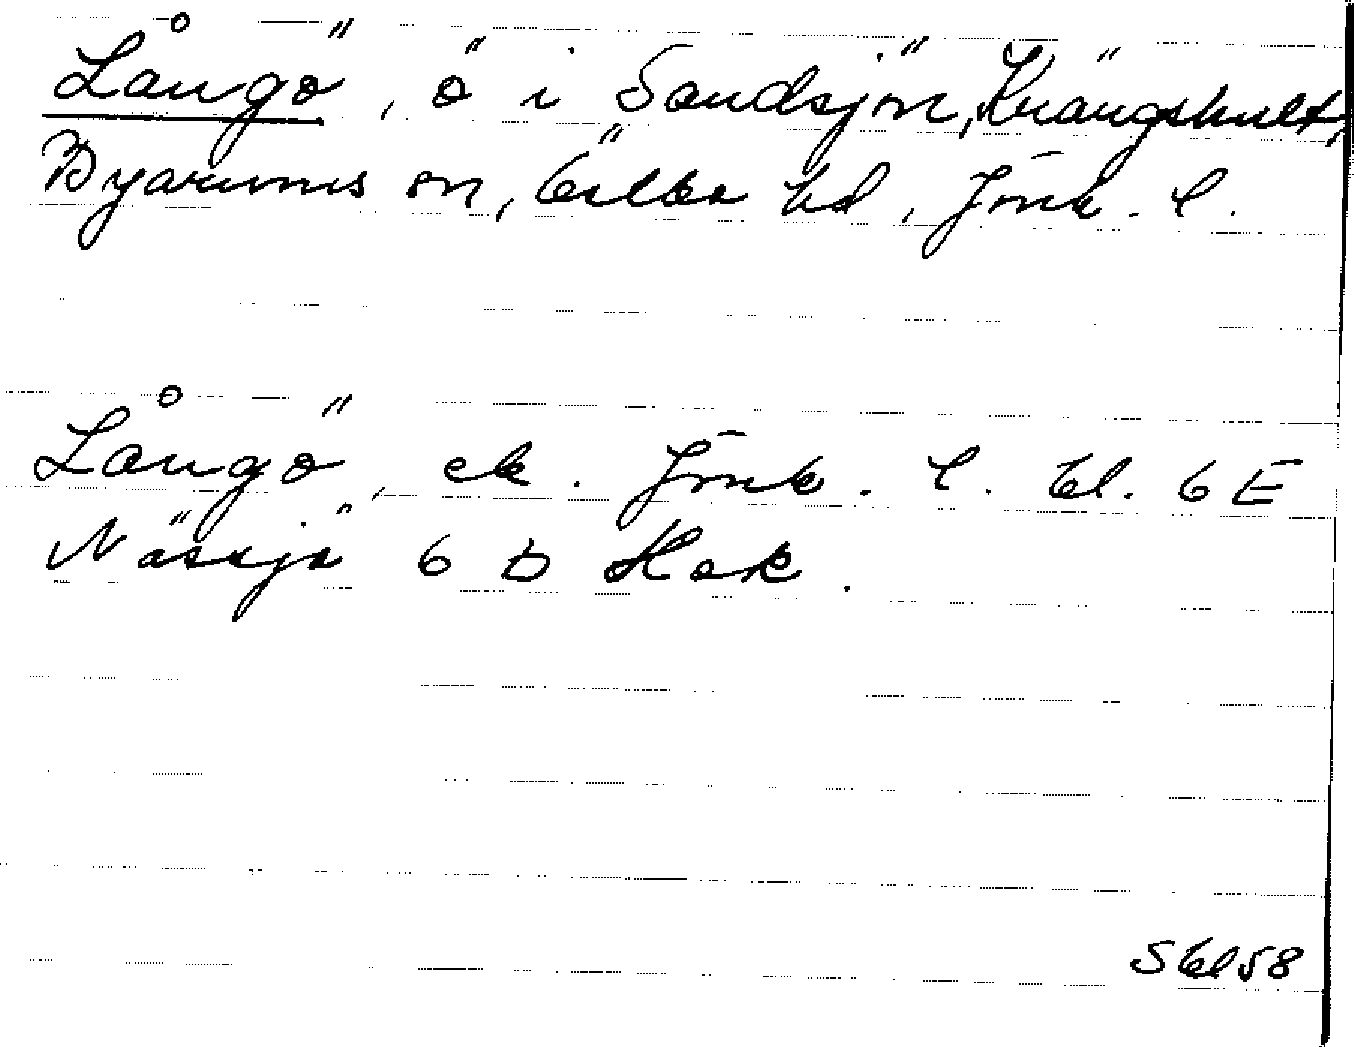 Långö, ö i Sandsjön, Krängshult,
Byarums sn, Östbo hd, Jönk. l.
Långö, ek. Jönk. l. bl. 6 E
Nässjö 6 D Hok.
Sbl 58